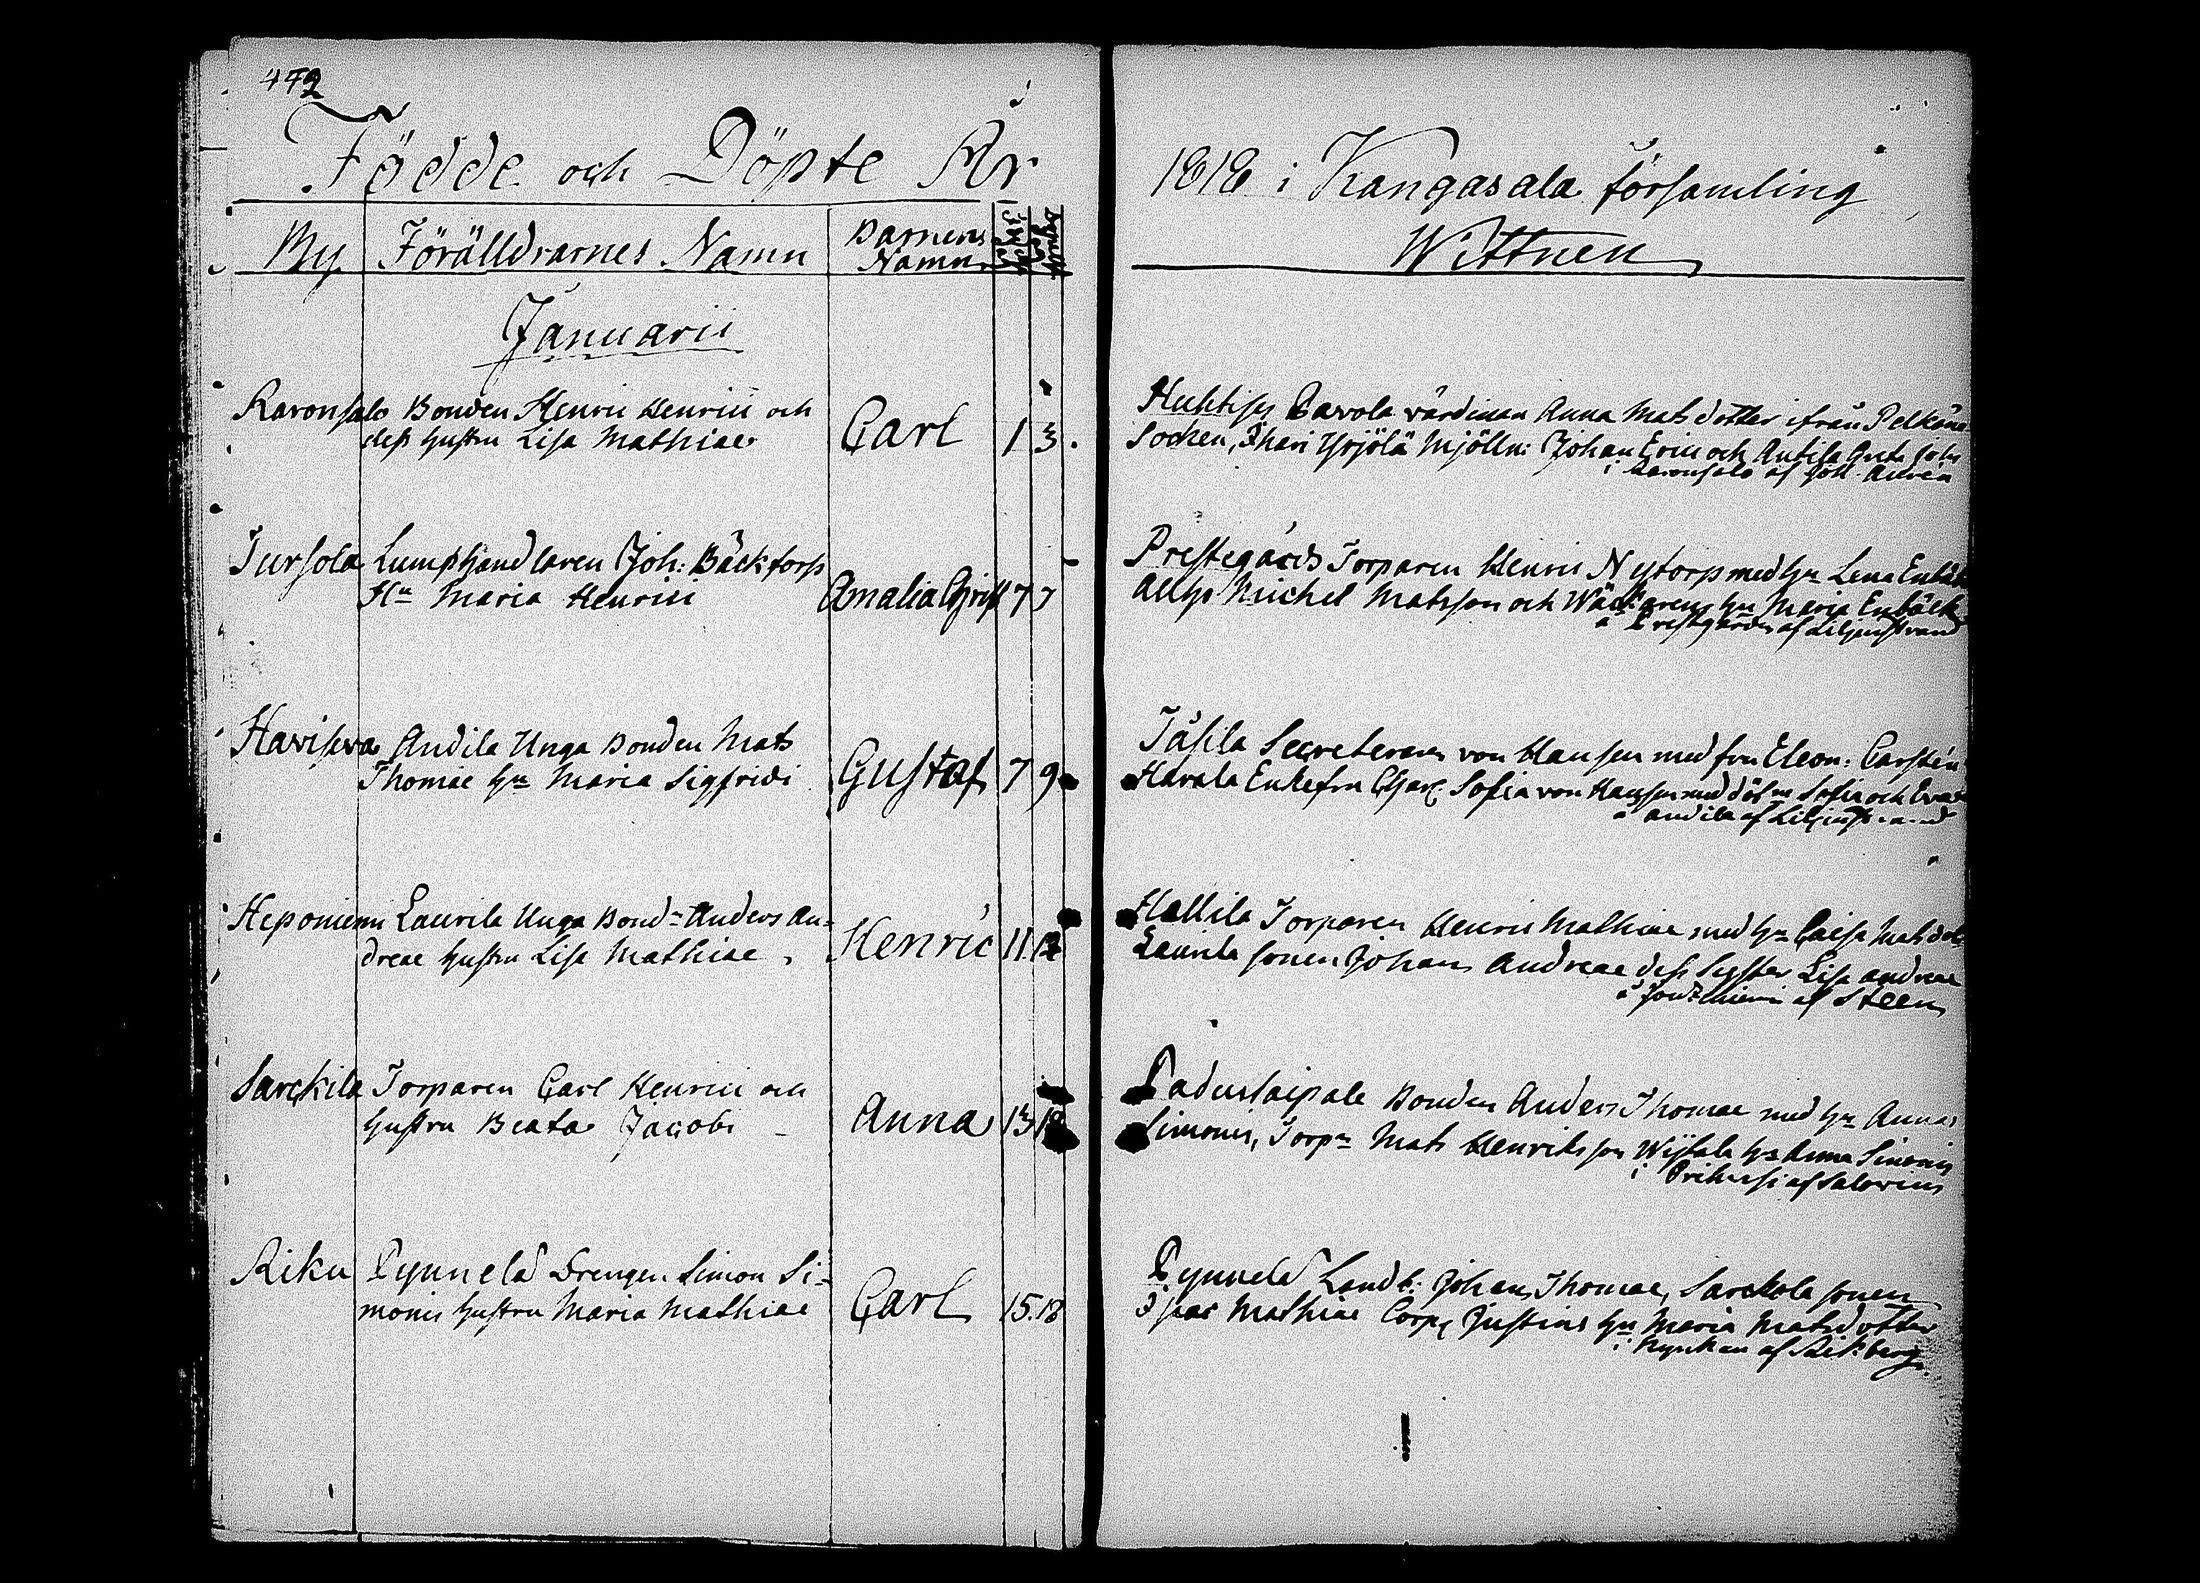 472
Födde och Döpte År
1818 i Kangasala församling
By Förälldrarnes Namn Barnens Namn
Wittnen
Januarii
Raronsalo Bonden Henric Henrici och
dess hustru Lisa Mathiae Carl 1 3
Huhtis Pavola värdinnan Anna Matsdotter ifrån Pelkäne
Socken, Ihari Yrjölä Mjölln: Johan Eric och Antila Gusta Joh
i Raronsalo af Joh. Aurén
Tursola Lumphandlaren Joh: Bäcktorp
Hu Maria Henrici Amalia Christ 7 7
Prestegårds Torparen Henric Nytorp med hu Lena Enbäck
Michel Matsson och hu Maria Enbäck
å Prestgården af Liljenstrand
Haviseva Andila Unga Bonden Mats
Thomae hu Maria Sigfridi Gustaf 7 9
Tåsila Secreteraren von Hausen med fru Eleon: Carstén
Harala Enkefru Charl Sofia von Hausen med döt Sofia och Eva
å Andila af Liljenstrand
Heponiemi Laurila Unga Bond Anders An=
dreae hustru Lisa Mathiae Henric 11 12
Hallila Torparen Henric Mathiae med hu Caisa Matsdot
Laurila sonen Johan Andreae dess Syster Lisa Andreae
å af Steen
Sarckila Torparen Carl Henrici och
hustru Beata Jacobi Anna 13 18
Padustaipale Bonden Anders Thomae med hu Anna
Simonis, Torp Mats Henriksson hu Anna Simonis
i af Salovius
Riku Pynnelä Drengen Simon Si=
monis hustru Maria Mathiae Carl 15. 18
Pynnelä Landb. Johan Thomae, Sarckola sonen
Isac Mathiae Corp Justins hu Maria Matsdotter
i af